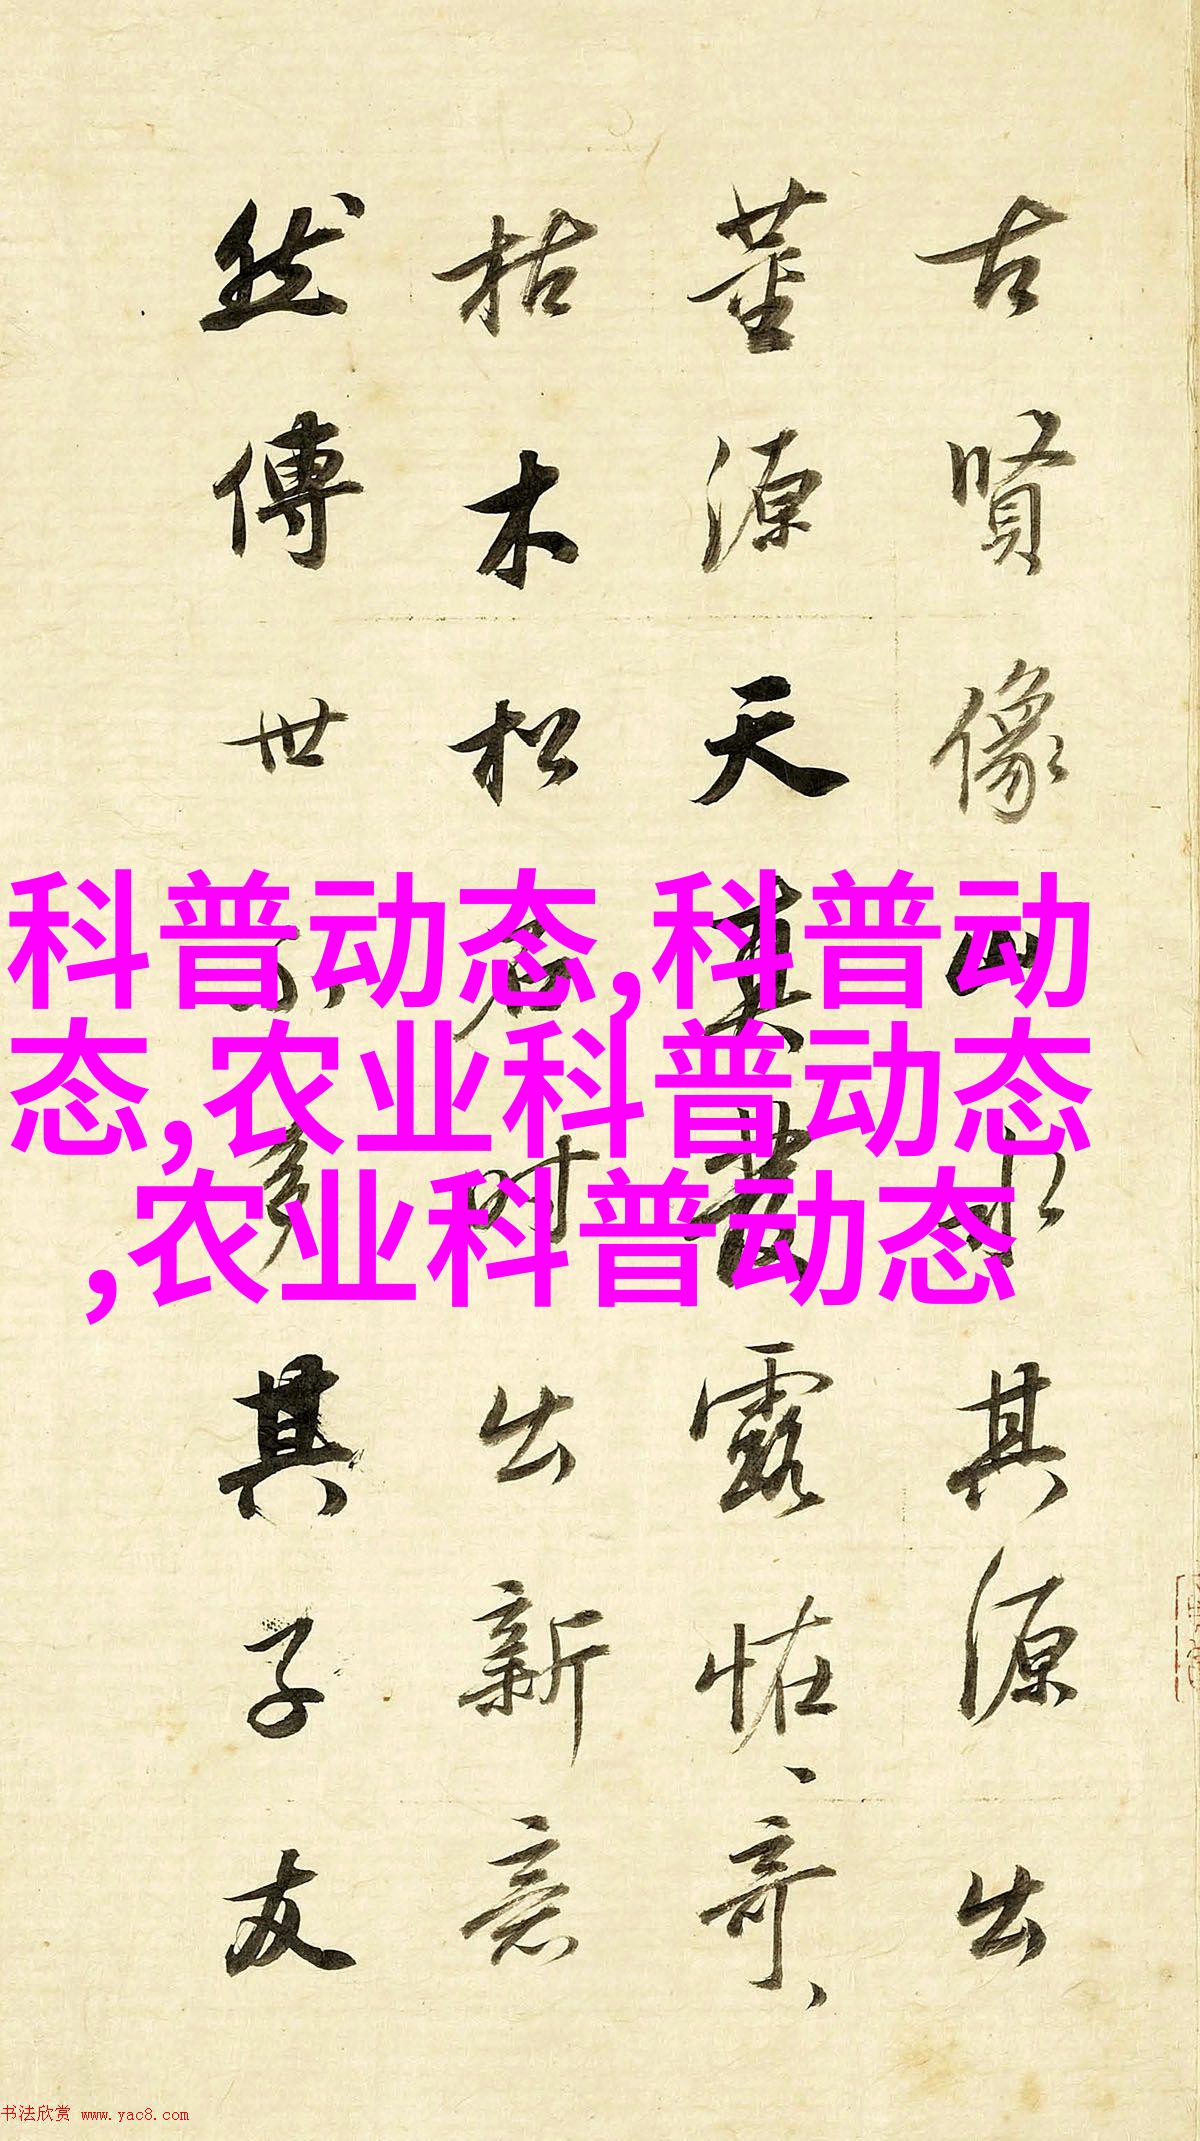 古賢像山水其源出
董源天真發露恠、奇、
枯木松石时出新意
然傳世不多其子友
科普动态,科普动
态,农业科普动态
,农业科普动态
书法欣赏 www.yac8.com